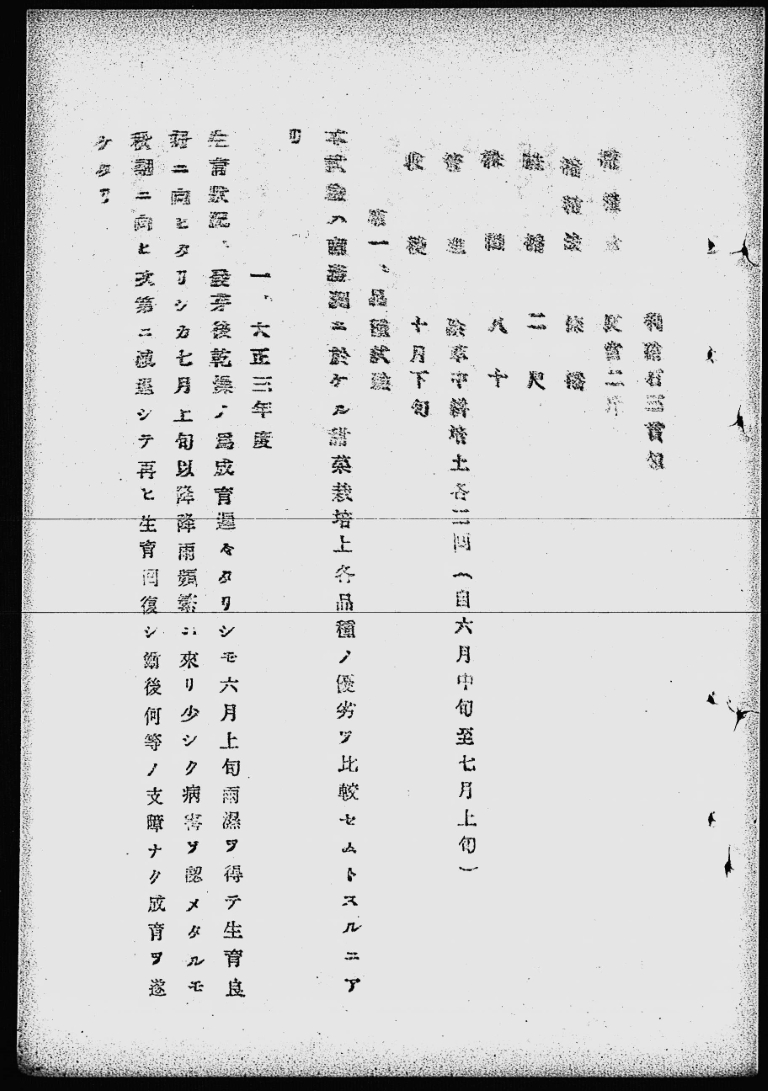 石三貫匁
播種量 反當二升
播種法 條播
畦幅 二尺
株間 八寸
管理 除草中耕培土各三回（自六月中旬至七月上旬）
收穫 十月下旬
第一、品種試驗
本試驗ハ南滿洲ニ於ケル蔬菜栽培上各品種ノ優劣ヲ比較セムトスルニア
リ
一、大正三年度
生育狀況、發芽後乾燥ノ爲成育遲々タリシモ六月上旬雨濕ヲ得テ生育良
好ニ向ヒタリシカ七月上旬以降降雨頻繁ニ來リ少シク病害ヲ認メタルモ
秋期ニ向ヒ次第ニ減退シテ再ヒ生育回復シ爾後何等ノ支障ナク成育ヲ遂
ケタリ